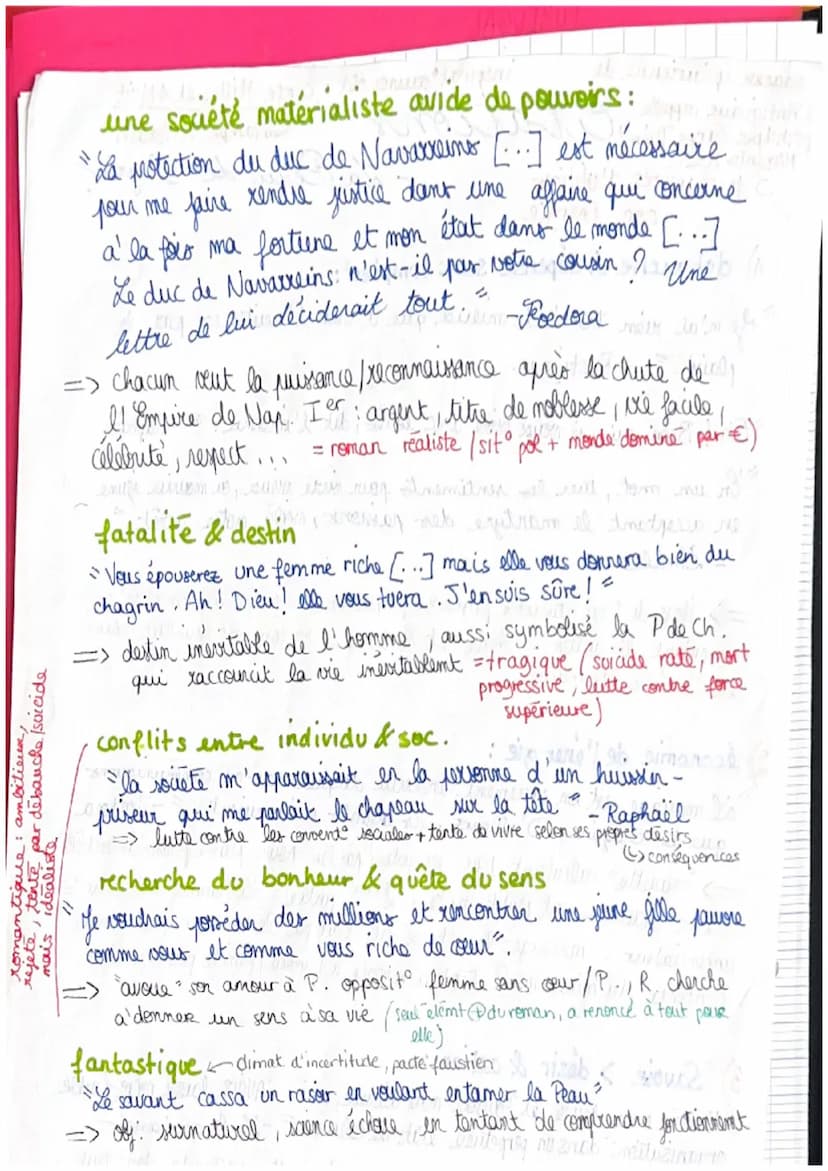 une société matérialiste avide de pouvoirs :
"La protection du duc de Navarreins [...] est nécessaire
pour me faire rendre justice dans une affaire qui concerne
à la fois ma fortune et mon état dans le monde [...]
Le duc de Navarreins n'est-il pas votre cousin ? Une
lettre de lui déciderait tout. " - Foedora
=> chacun veut la puissance/reconnaissance après la chute de
l'Empire de Nap. Ier : argent, titre de noblesse, vie facile,
célébrité, respect ... = roman réaliste (sit° pol + monde dominé par €)
fatalité & destin
"Vous épouserez une femme riche [...] mais elle vous donnera bien du
chagrin. Ah ! Dieu ! elle vous tuera. J'en suis sûre ! "
=> destin inévitable de l'homme, aussi symbolisé la P de Ch.
qui raccourcit la vie inévitablemt = tragique (suicide raté, mort
progressive, lutte contre force
supérieure)
conflits entre individu & soc.
"la société m'apparaissait en la personne d'un huissier-
priseur qui me parlait le chapeau sur la tête" - Raphaël
=> lutte contre les convent° sociales + tente de vivre selon ses propres désirs
↳ conséquences
romantique : ambitieux,
rejeté, tenté par débauche/suicide
mais idéaliste
recherche du bonheur & quête du sens
"Je voudrais posséder des millions et rencontrer une jeune fille pauvre
comme vous et comme vous riche de cœur".
=> "avoue" son amour à P. opposit° femme sans cœur/P., R. cherche
à donner un sens à sa vie (seul élémt ⊕ du roman, a renoncé à tout pour
elle)
fantastique ← climat d'incertitude, pacte faustien
"Le savant cassa un rasoir en voulant entamer la Peau"
=> obj. surnaturel, science échoue en tentant de comprendre fonctionnemt